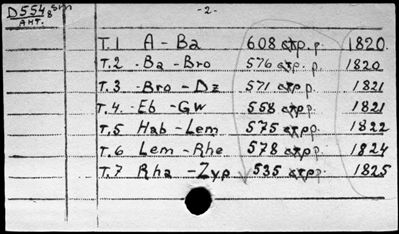 D554 8 sm
Ант.
- 2. -
Т.1 A - Ba 608 стр. р. 1820.
Т.2 - Ba - Bro 576 стр. р. 1820
Т.3 - Bro - Dz 571 стр. р. 1821
Т.4. - Eb - Gw 558 стр. р. 1821
Т.5 Hab - Lem 575 стр. р. 1822
Т.6 Lem - Rhe 578 стр. р. 1824
Т.7 Rha - Zyp 535 стр. р. 1825